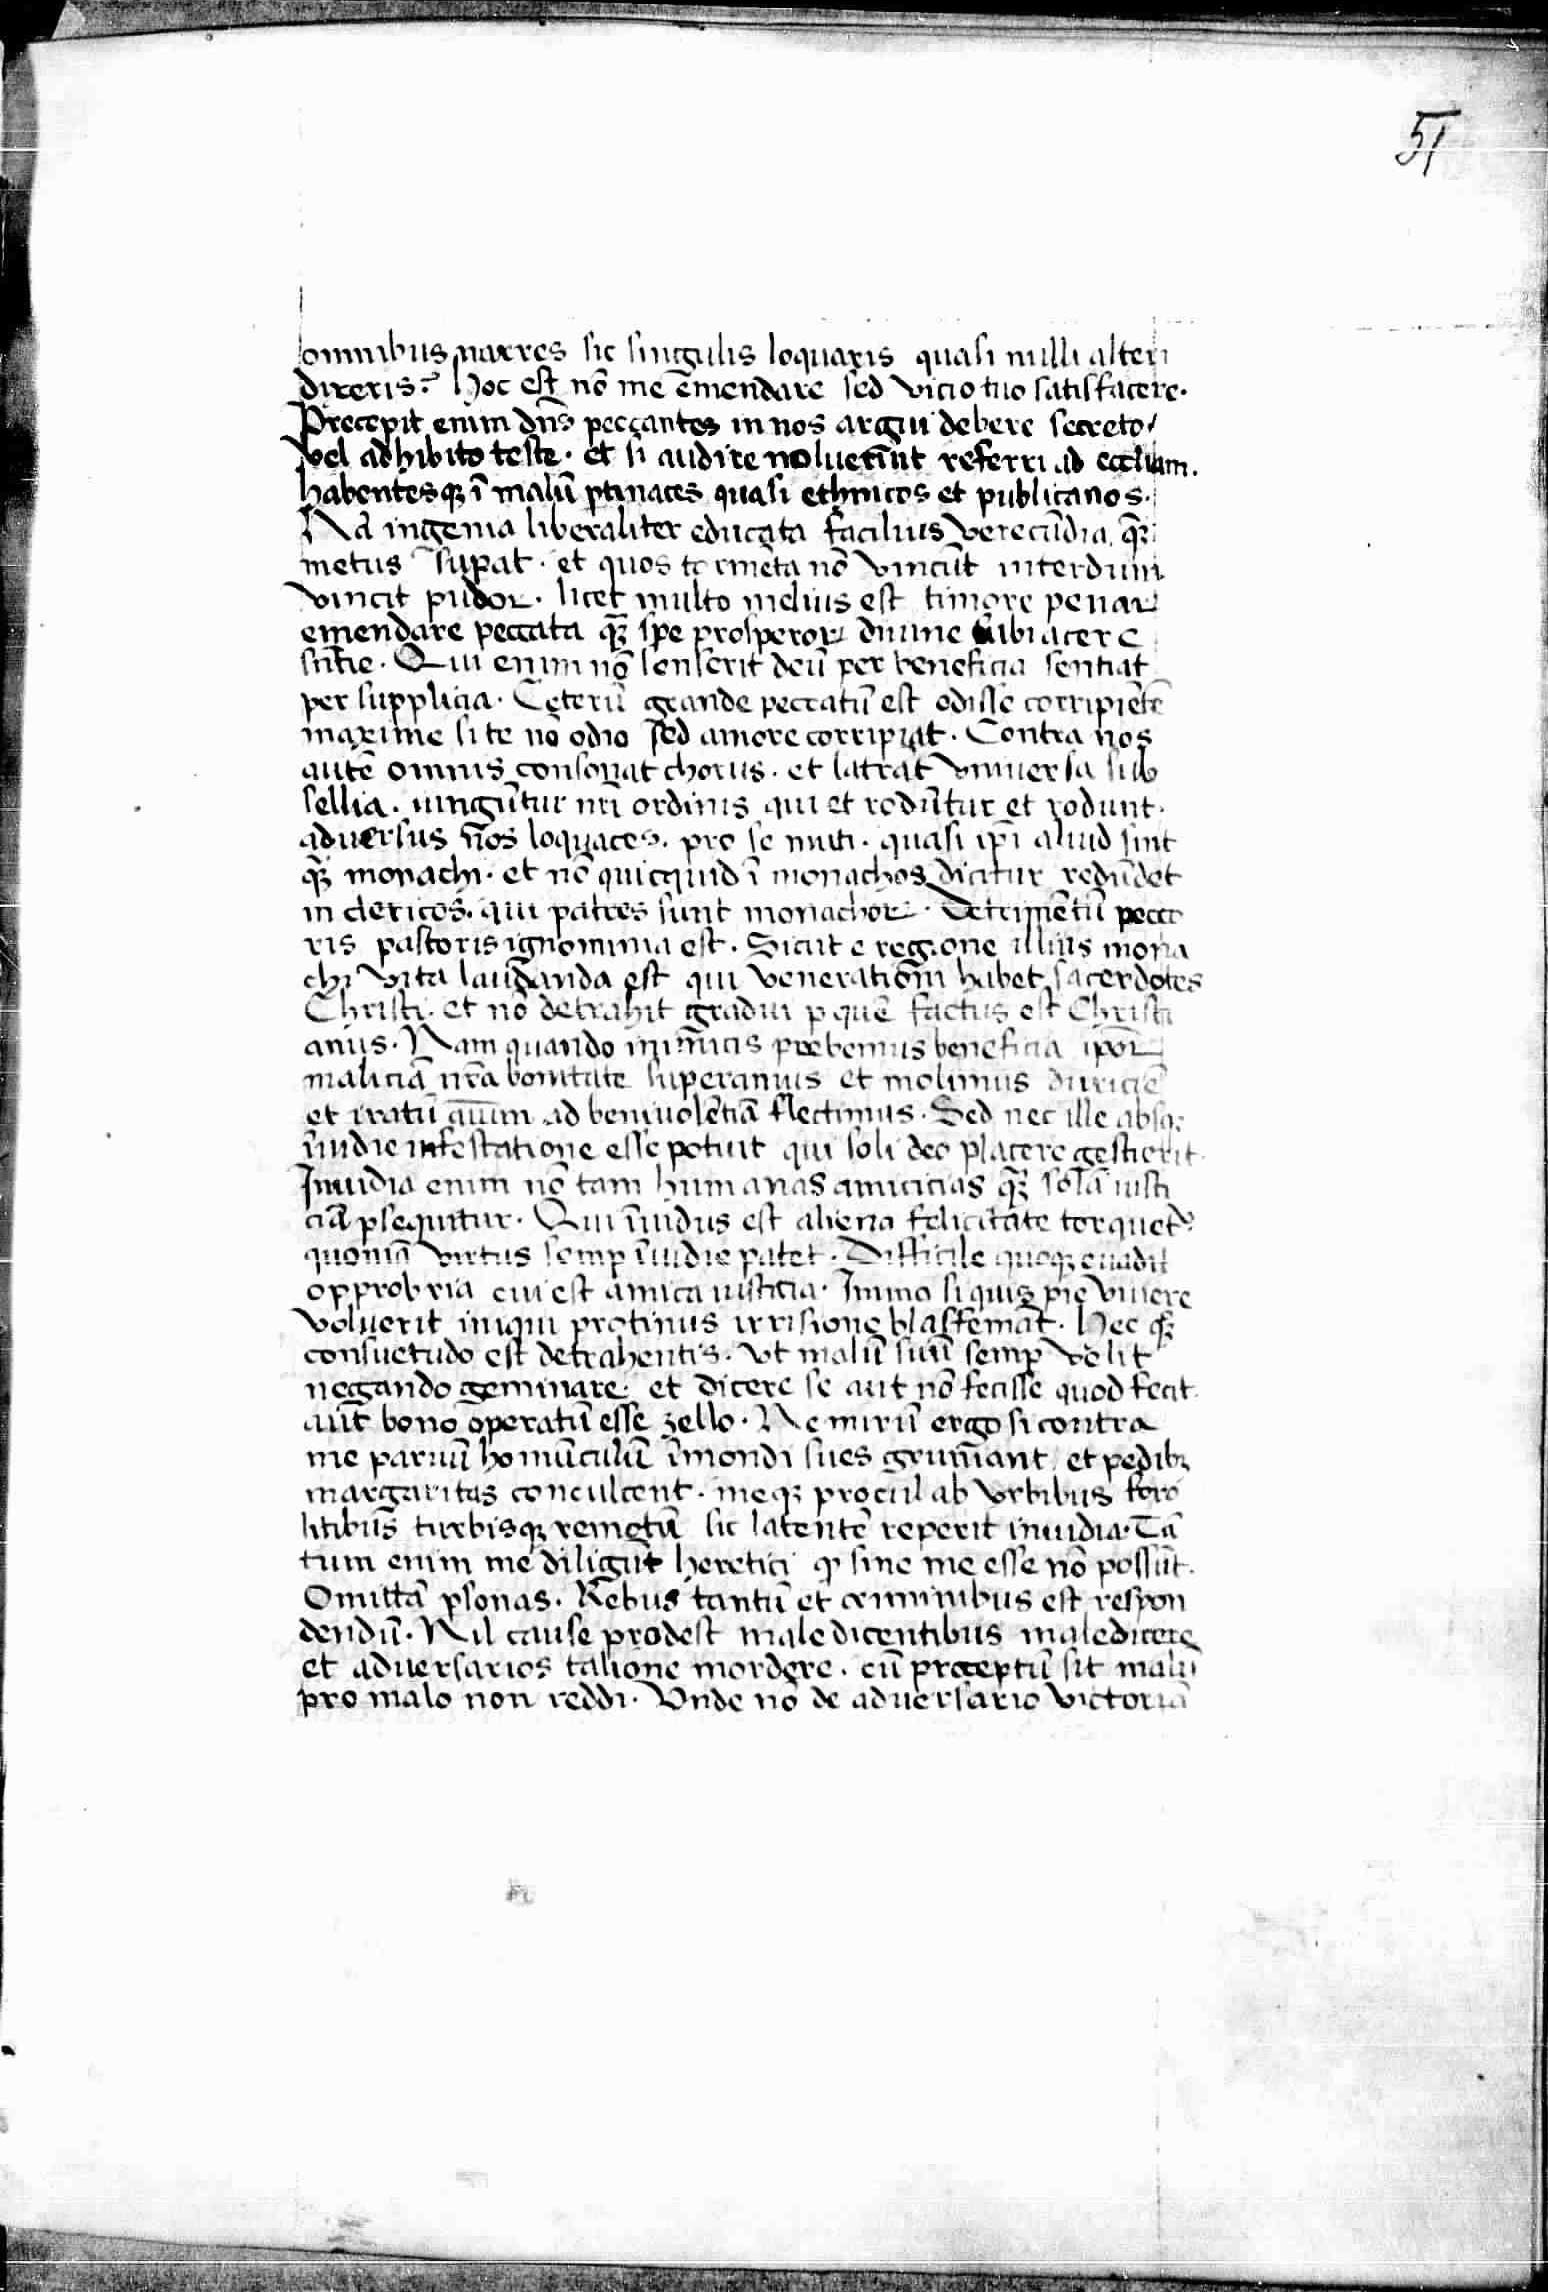 51
omnibus narres sic singulis loquaris quasi nulli alteri
dixeris? Hoc est nō me ēmendare sed vicio tuo satisfacere.
Precepit enim dn̄s peccantes in nos argui debere secreto/
vel adhibito teste. et si audire noluerīnt referri ad eccliam.
habentesqꝫ ī malū ꝑtinaces quasi ethnicos et publicanos.
Nā ingenia liberaliter educata facilius verecūdia qꝫ̄
metus supat. et quos tormēta nō vincūt interdum
vincit pudor. licet multo melius est timore penaꝝ
emendare peccata qꝫ̄ spe prosperoꝝ diuine subiacere
sn̄tie. Qui enim nō senserit deū per beneficia sentiat
per supplicia. Ceterū grande peccatū est odisse corripiētē
maxime si te nō odio sed amore corripiat. Contra nos
autē omnis consonat chorus. et latrāt vniuersa sub
sellia. iungūtur nr̄i ordinis qui et rodūtur et rodunt.
aduersus n̄os loquaces. pro se muti. quasi ip̄i aliud sint
qꝫ̄ monachi. et nō quicquid ī monachos dicitur redūdet
in clericos. qui patres sunt monachoꝝ. Detrimētū peco
ris pastoris ignominia est. Sicut e regione illius mona
chi vita laudanda est qui venerationi habet sacerdotes
Christi. et nō detrahit gradui ꝑ quē factus est Christi
anus. Nam quando inimicis prebemus beneficia ipoꝝ
maliciā nr̄a bonitate superamus et molimus duriciē
et iratū aīum ad beniuolētiā flectimus. Sed nec ille absqꝫ
īuidie infestatione esse potuit qui soli deo placere gestierit.
Inuidia enim nō tam humanas amicicias qꝫ̄ solā iusti
ciā ꝑsequitur. Qui īuidus est aliena felicitate torquet᷑
quoniā virtus semꝑ īuidie patet. Difficile quoqꝫ euadit
opprobria cui est amica iusticia. Immo si quis pie viuere
voluerit iniqui protinus irrisione blasfemāt. Hec qꝫ̄
consuetudo est detrahentis. vt malū suū semꝑ velit
negando geminare. et dicere se aut nō fecisse quod fecit.
aut bono operatū esse zello. Ne mirū ergo si contra
me paruū homūculū īmondi sues grunniant et pedibꝫ
margaritas conculcent. meqꝫ procul ab vrbibus foro
litibus turbisqꝫ remotū sic latentē reperit inuidia. Tā
tum enim me diligūt heretici ꝙ sine me esse nō possūt.
Omittā ꝑsonas. Rebus tantū et criminibus est respon
dendū. Nil cause prodest maledicentibus maledicere
et aduersarios talione mordere. cū preceptū sit malū
pro malo non reddi. Vnde nō de aduersario victoriā